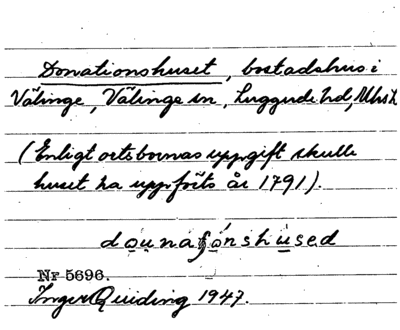 Donationshuset, bostadshus i
Välinge, Välinge sn, Luggude hd, Mhs l.
(Enligt ortsbornas uppgift skulle
huset ha uppförts år 1791).
dounaʃónshused
Nr 5696.
Inger Quiding 1947.